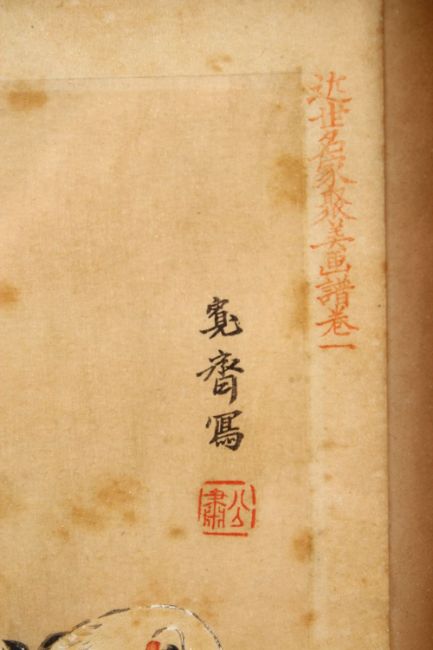 近世名家聚美画譜卷一
寛齋寫
公肅